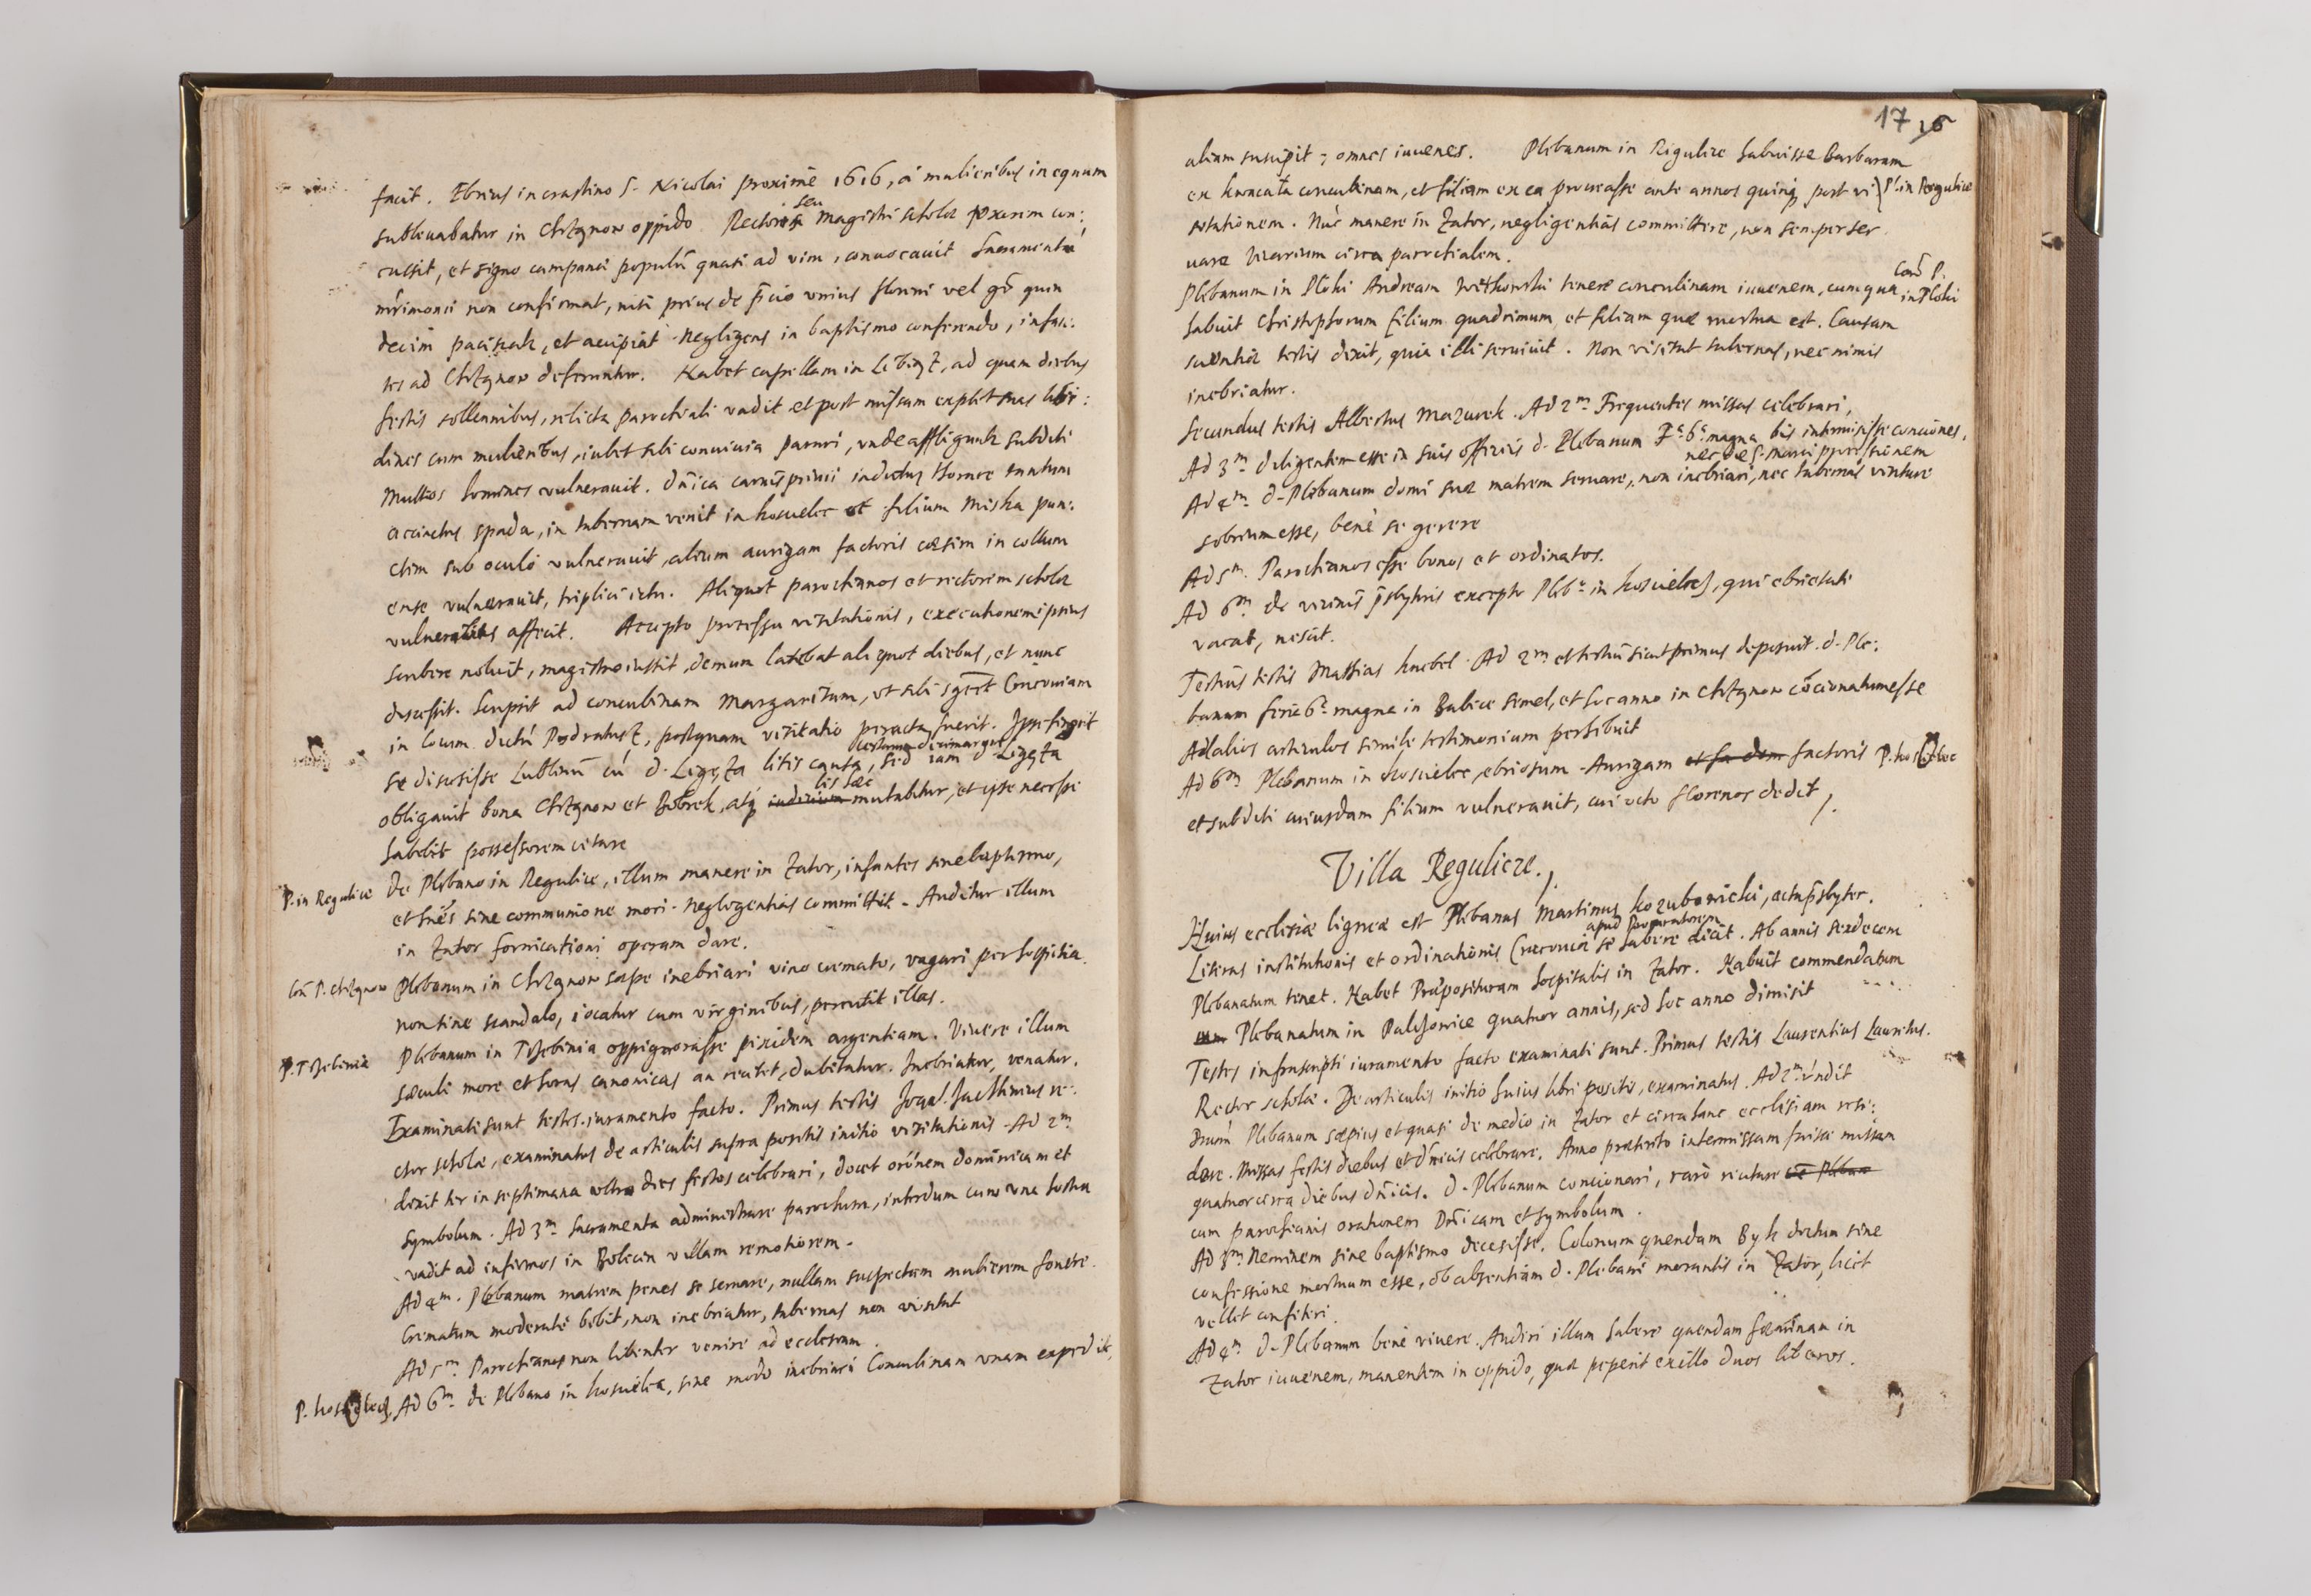 facit. Ebrius in crastino S. Nicolai proximè 1616, à mulieribus in equum
subleuabatur in Chrzanow oppido. Rectoris seu Magistri scholæ uxorem con:
cussit, et signo campanæ populũ quasi ad vim, conuocauit Sacramentũ
mr̃imonii non confirmat, nisi prius de pr̃cio unius floreni vel gr̃ quin
decim paciscatur, et accipiat. Negligens in baptismo conferendo, infan:
tes ad Chrzanow deferuntur. Habet capellam in Libiąż, ad quam diebus
festis sollennibus, relicta parochiali vadit et post missam explet suas libi:
dines cum mulieribus, iubet sibi conuiuia parari, unde affliguntur subditi
Multos homines vulnerauit. Dñica carnisprivii indutus
accinctus spada, in tabernam venit in Koscielec et filium Miska pun:
ctim sub oculo vulnerauit, alium aurigam factoris cæsim in collum
ense vulnerauit, triplici ictu. Aliquot parochianos et rectorem scholæ
vulneribus affecit. Accepto processu visitationis, executionem ipsius
scribere noluit, magistro iussit, demum latebat aliquot diebus, et nunc
discessit. Scripsit ad concubinam Margaritam, ut sibi Cracouiam
in locum dictũ Podratusz, postquam visitatio peracta fuerit. Ipse fingit
se discessisse Lublinũ cũ d. Ligęza litis causa, sed iam d. Ligęza
obligauit bona Chrzanow et Bobrek, atq; iudicium lis hæc mutabitur, et ipse necesse
habebit possessorem citare
P. in Regulice De Plebano in Regulice, illum manere in Zator, infantes sine baptismo,
et hoĩes sine communione mori. Negligentias committit. Auditur illum
in Zator fornicationi operam dare.
Con͂ P. Chrzanow Plebanum in Chrzanow sæpe inebriari vino cremato, vagari per hospitia
non sine scandalo, iocatur cum virginibus, percutit illas.
P. Trzebinia Plebanum in Trzebinia oppignorasse pixidem argenteam. Viuere illum
sæculi more et horas canonicas an recitet, dubitatur. Inebriatur, venatur.
Examinati sunt testes iuramento facto. Primus testis re:
ctor scholæ, examinatus de articulis supra positis initio visitationis. Ad 2m
dixit ter in septimana ultra dies festos celebrari, docet orõnem dominicam et
symbolum. Ad 3m Sacramenta administrare parochum, interdum cum una hostia
vadit ad infirmos in Bolecin villam remotiorem.
Ad 4m. Plebanum matrem penes se seruare, nullam suspectam mulierem fouere.
Crematum moderatè bibit, non inebriatur, tabernas non visitat
Ad 5m Parochianos non libenter venire ad ecclesiam.
P. Koscielec Ad 6m de Plebano in Koscielec, sine modo inebriari Concubinam unam expedit,
17 16
aliam suscipit; omnes iuuenes. Plebanum in Regulice habuisse Barbaram
concubinam, et filiam ex ea procreasse ante annos quinq; post vi
Pl. in Regulice
sitationem. Nũc manere in Zator, negligentias committere, non semper ser
uare Vicarium circa parochialem.
Plebanum in Ploki Andream Witkowski tenere concubinam iuuenem, cum qua
Con͂ P. in Ploki
habuit Christophorum filium quadrimum et filiam quæ mortua est. Causam
scientiæ testis dixit, quia illi seruiuit. Non visitat tabernas, nec nimis
inebriatur.
Secundus testis Albertus Mazurek. Ad 2m. Frequentes missas celebrari,
Ad 3m diligentem esse in suis officiis d. Plebanum Fa 6a magna bis intermisisse conciones,
nec de S. Marci processionem
Ad 4m d. Plebanum domi suæ matrem seruare, non inebriari, nec tabernas visitare
sobrium esse, benè se gerere
Ad 5m. Parochianos esse bonos et ordinatos.
Ad 6m de vicinis p̃sbyteris excepto Pleb. in Koscielec, qui ebrietati
vacat, nescit.
Tertius testis Mathias Knebel. Ad 2m et tertiũ sicut primus deposuit. d. Ple:
banum feria 6a magna in Babice semel, et hoc anno in Chrzanow cõcionatum esse
Ad alios articulos simile testimonium perhibuit
Ad 6m Plebanum in Koscielec, ebriosum. Aurigam factoris P. Koscielec
et subditi cuiusdam filium vulnerauit, cui octo florenos dedit /.
Villa Regulicze.
Huius ecclesiæ ligneæ est Plebanus Martinus Kozubowicki, actu p̃sbyter.
Literas institutionis et ordinationis Cracouiæ se apud Procuratorem habere dicit. Ab annis sexdecem
Plebanatum tenet. Habet Præposituram hospitalis in Zator. Habuit commendatum
Plebanatum in Palczowice quatuor annis, sed hoc anno dimisit
Testes infrascripti iuramento facto examinati sunt. Primus testis Laurentius Lauritus.
Rector scholæ. De articulis initio huius libri positis, examinatus. Ad 2m r̃ndit
Dnũm Plebanum sæpius et quasi de medio in Zator et circa hanc ecclesiam resi:
dere. Missas festis diebus et dñicis celebrare. Anno præterito intermissam fuisse missam
quatuor circa diebus dñicis. d. Plebanum concionari, rarò recitare
cum parochianis orationem Dñicam et symbolum.
Ad 3m Neminem sine baptismo decesisse. Colonum quendam Byk dictum sine
confessione mortuum esse, ob absentiam d. Plebani morantis in Zator, licet
vellet confiteri.
Ad 4m d. Plebanum benè viuere. Audiri illum habere quendam fœminam in
Zator iuuenem, manentem in oppido, quæ peperit ex illo duos liberos.